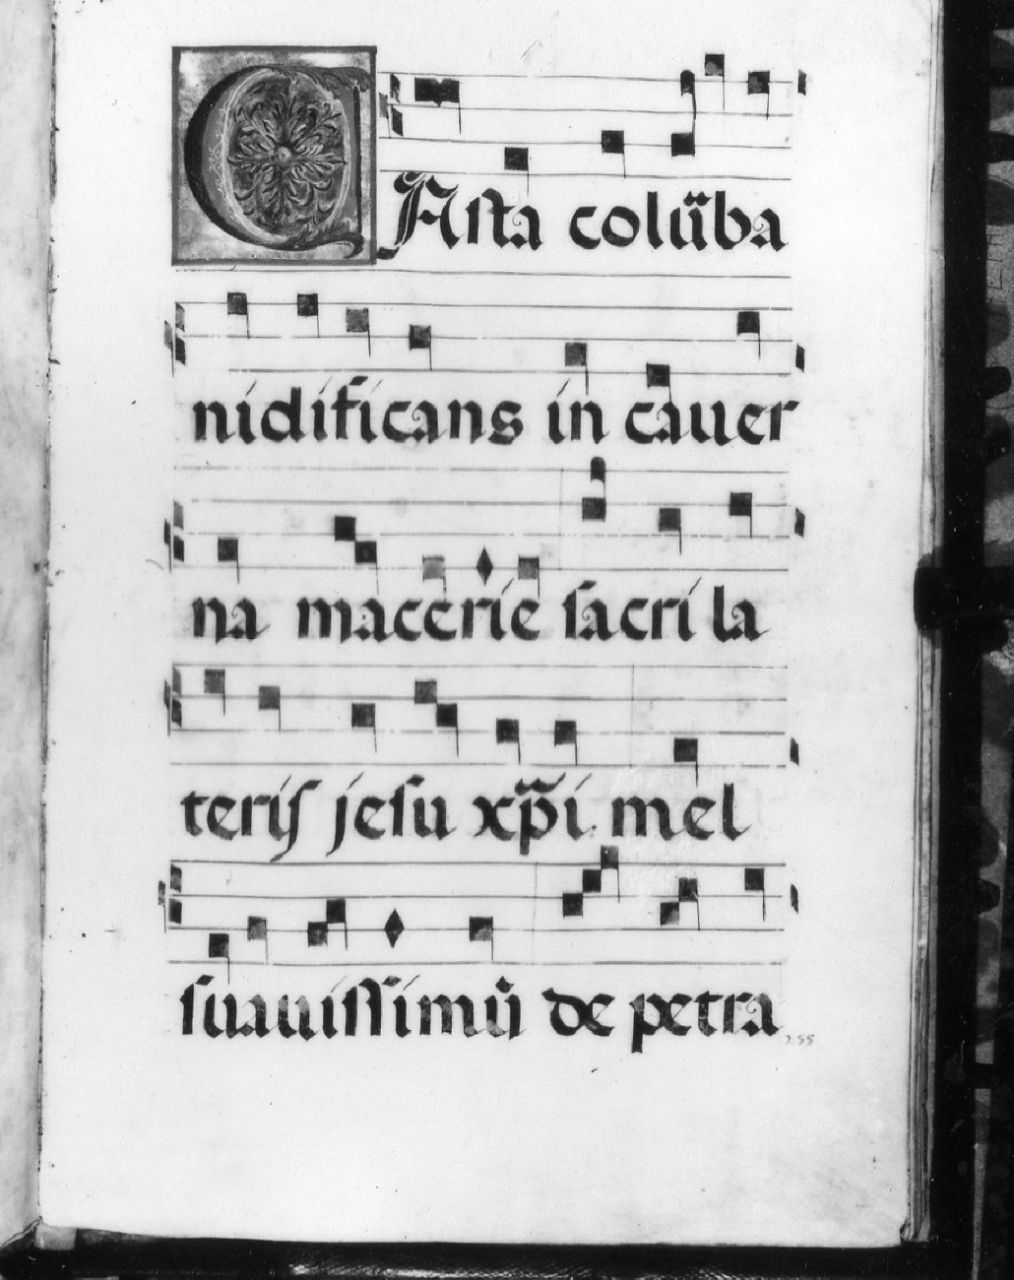 CAſta colūba
nidificans in cauer
na macerie ſacri la
teris jeſu xp̄i mel
ſuauiſſimū de petra
255